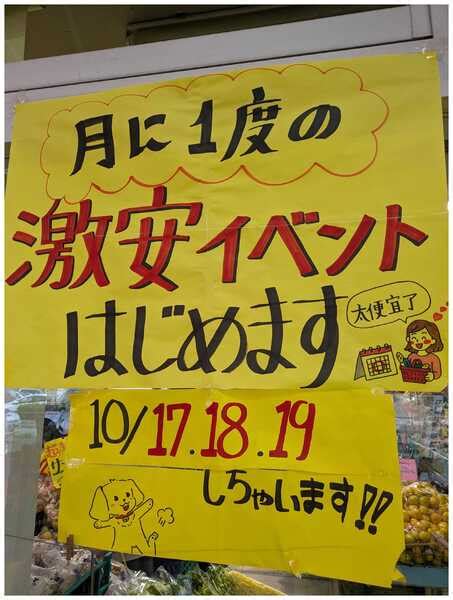 月に1度の
激安イベント
はじめます
太便宜了
10/17.18.19
しちゃいます!!